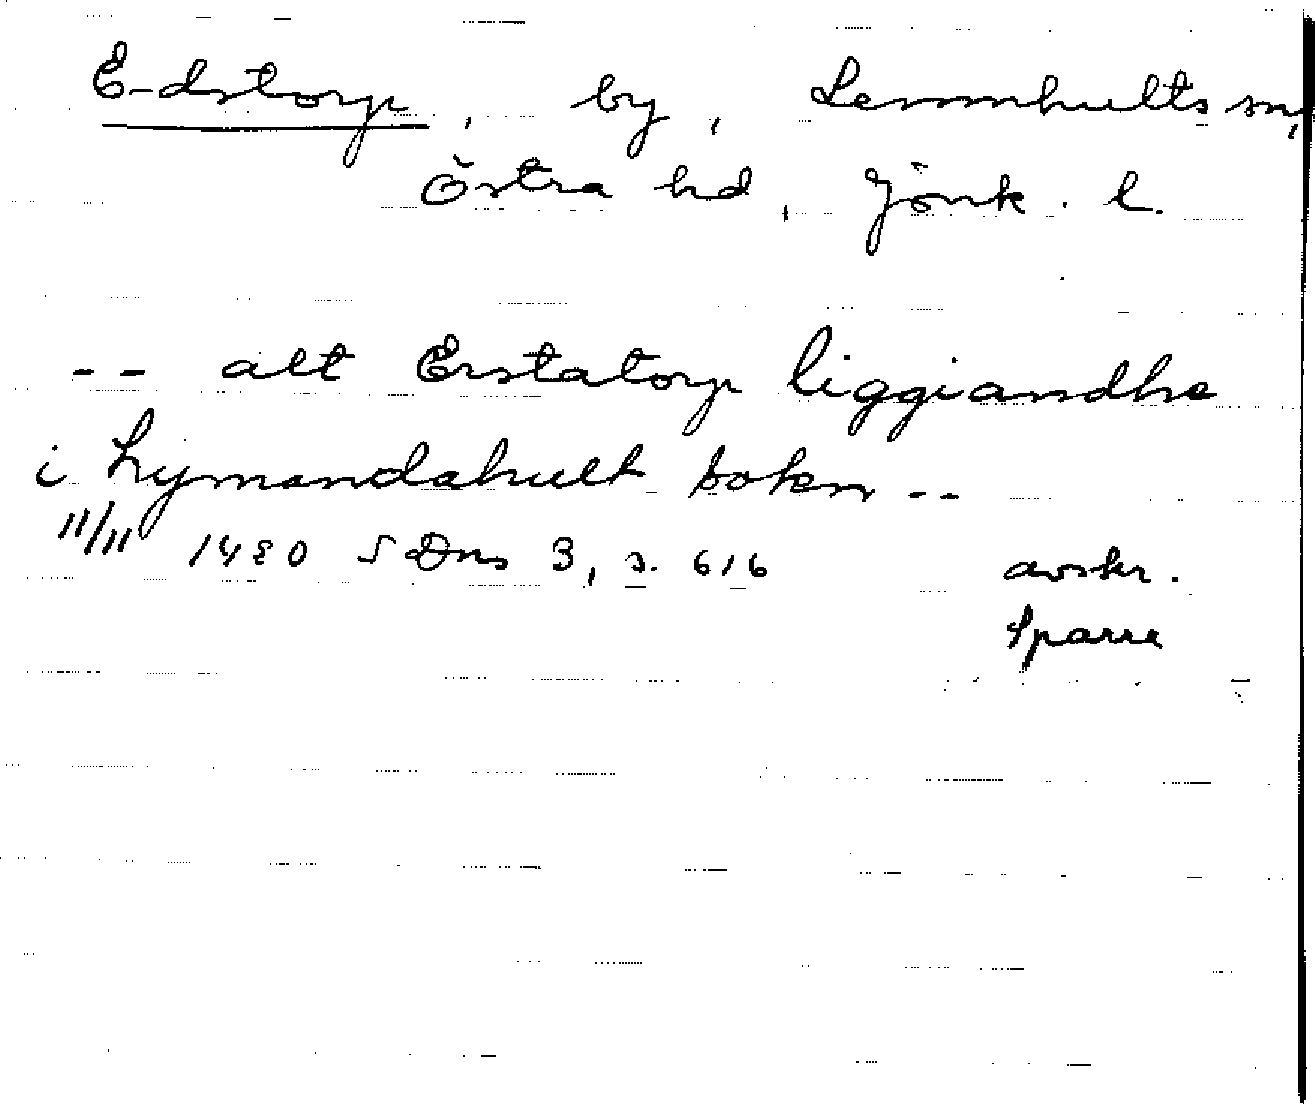 Edstorp, by, Lemnhults sn,
Östra hd, Jönk. l.
-- alt Erstatorp liggiandhe
i Lymandahult sokn --
11/11 1480 Dns 3, s. 616 avskr.
Sparre